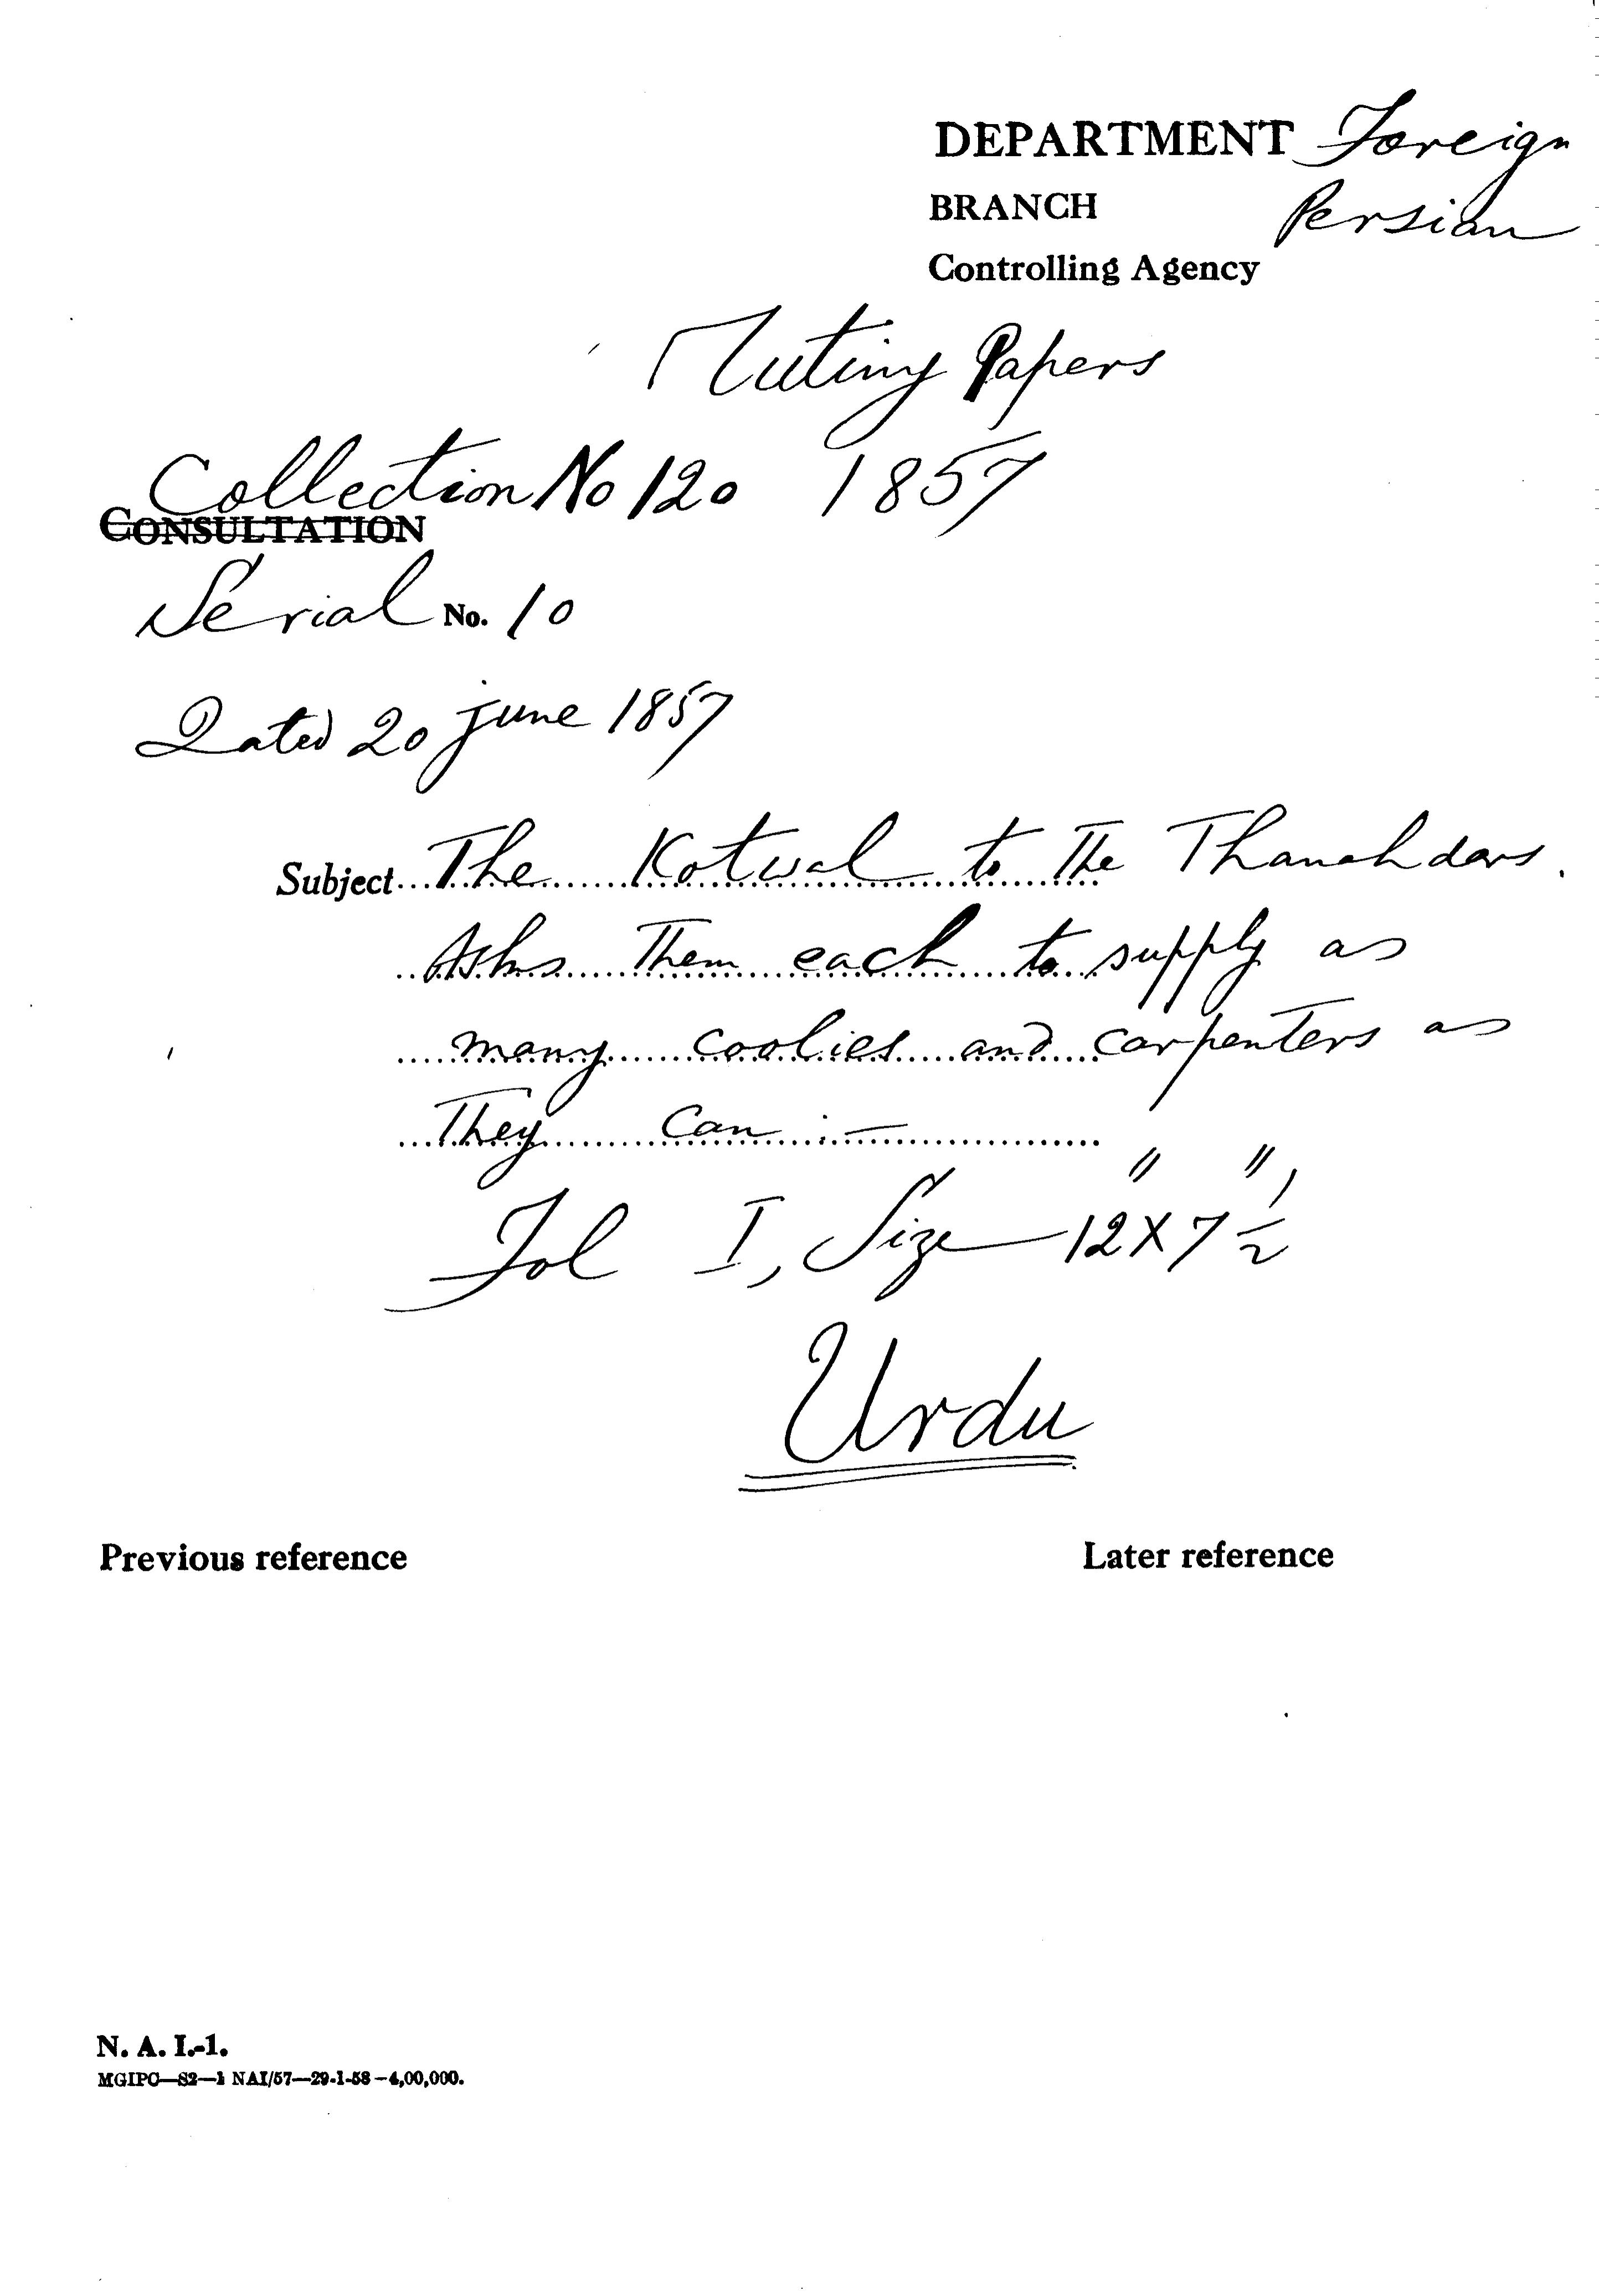 DEPARTMENT Foreign
BRANCH Persian
Controlling Agency
Mutiny Papers
Collection No 120 1857
CONSULTATION
Serial No. 10
Dated 20 June 1857
Subject The Kotwal to the Thanahdars.
Asks them each to supply as
many coolies and carpenters as
they can :—
Fol I, Size 12" X 7½"
Urdu
Previous reference Later reference
N. A. I.-1.
MGIPC—S2—1 NAI/57—29-1-58—4,00,000.